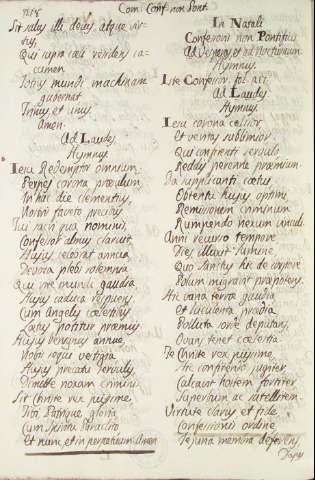 Com. Conf. non Pont.
Sit salus illi decus atque vir-
tus,
Qui supra cæli residens ca-
cumen
Totius mundi machinam
gubernat
Trinus et unus
Amen
Ad Laudes
Hymnus.
Iesu Redemptor omnium
Perpes corona præsulum
In hac die clementius
Nostris faveto precibus
Tui sacri qua nominis
Confessor almus claruit
Hujus celebrat annua
Devota plebs solemnia
Qui rite mundi gaudia
Hujus caduca respuens
Cum Angelis cælestibus
Lætus potitur præmiis
Hujus benignus annue
Nobis sequi vestigia
Hujus precatu servulis
Dimitte noxam criminis
Sit Christe rex piissime
Tibi Patrique gloria
Cum Spiritu Paraclito
Et nunc et in perpetuum Amen
In Natali
Confessoris non Pontificis
Ad Vesperas et ad Nocturnum
Hymnus.
Iste Confessor fol.
Ad Laudes
Hymnus
Iesu corona celsior
Et veritas sublimior
Qui confitenti servulo
Reddis perenne præmium
Da supplicanti cœtui
Obtentu hujus optimi
Remissionem criminum
Rumpendo nexum vinculi
Anni recurso tempore
Dies illuxit lumine
Quo Sanctus hic de corpore
Polum migravit præpotens
Hic vana terræ gaudia
Et luculenta prædia
Polluta sorde deputans
Ovans tenet cœlestia
Te Christe rex piissime
Hic confitendo jugiter
Calcavit hostem fortiter
Superbum ac satellitem
Virtute clarus et fide
Confessionis ordine
Jejuna membra deferens
Dapes